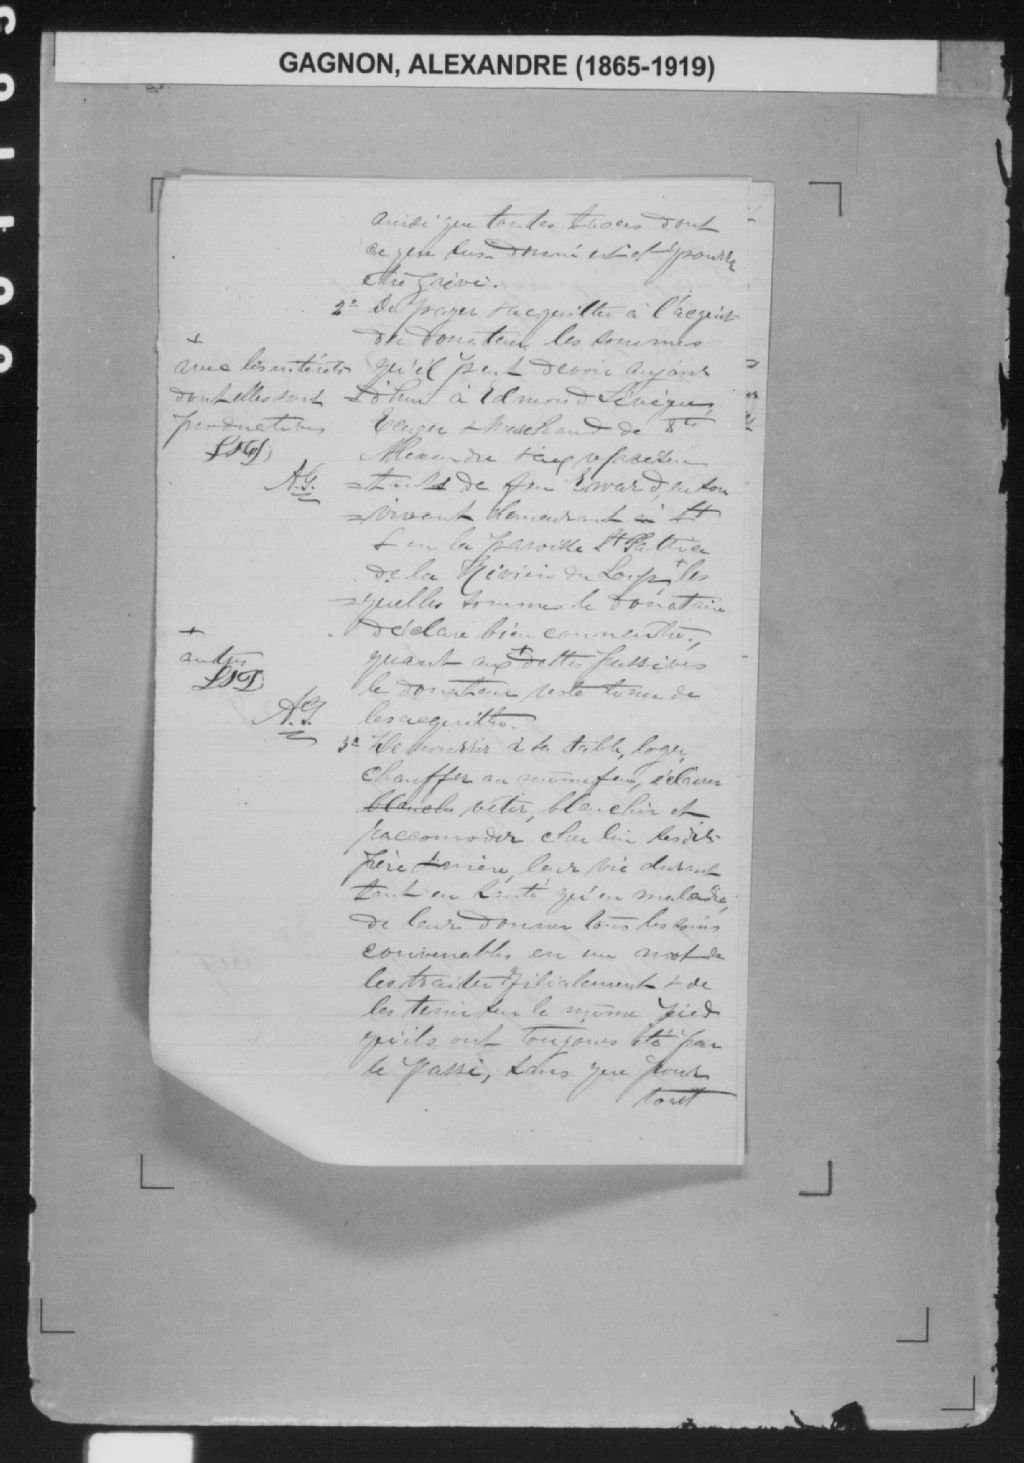 GAGNON, ALEXANDRE (1865-1919)
ainsi que toutes taxes dont
ce que sus-donné est et pourra
être grévé.
2° De payer & acquitter à l'acquit
du donateur les sommes
+
avec les intérêts
dont elles sont
productives
A.G.
qu'il peut devoir aujour
=d'hui à Edmond Lévêque,
Ecuyer & Marchand de Ste
Alexandre & aux représen
=tants de feu Edward, en son
=vivant demeurant à St
& en la paroisse St Patrice
de la Rivière du Loup,+ les
=quelles sommes le donataire
déclare bien connaitre;
+
autres
A.G.
quant aux + dettes passives
le donateur reste tenu de
les acquitter.
3° De nourrir à sa table, loger,
chauffer au même feu, éclairer
blanchir vêtir, blanchir et
raccomoder chez lui ses dits
père & mère, leur vie durant
tant en santé qu'en maladie,
de leur donner tous les soins
convenables en un mot de
les traiter filialement & de
les tenir sur le même pied
qu'ils ont toujours été par
le passé, sans que pour
tout